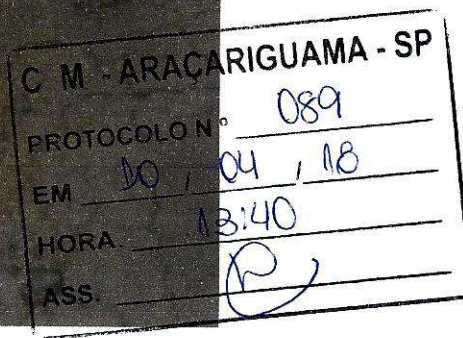 C M - ARAÇARIGUAMA - SP
PROTOCOLO Nº 089
EM 10 / 04 / 18
HORA 13:40
ASS.